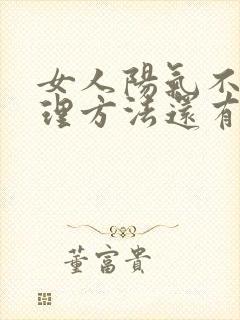 女人陽氣不
理方法還有
董富貴